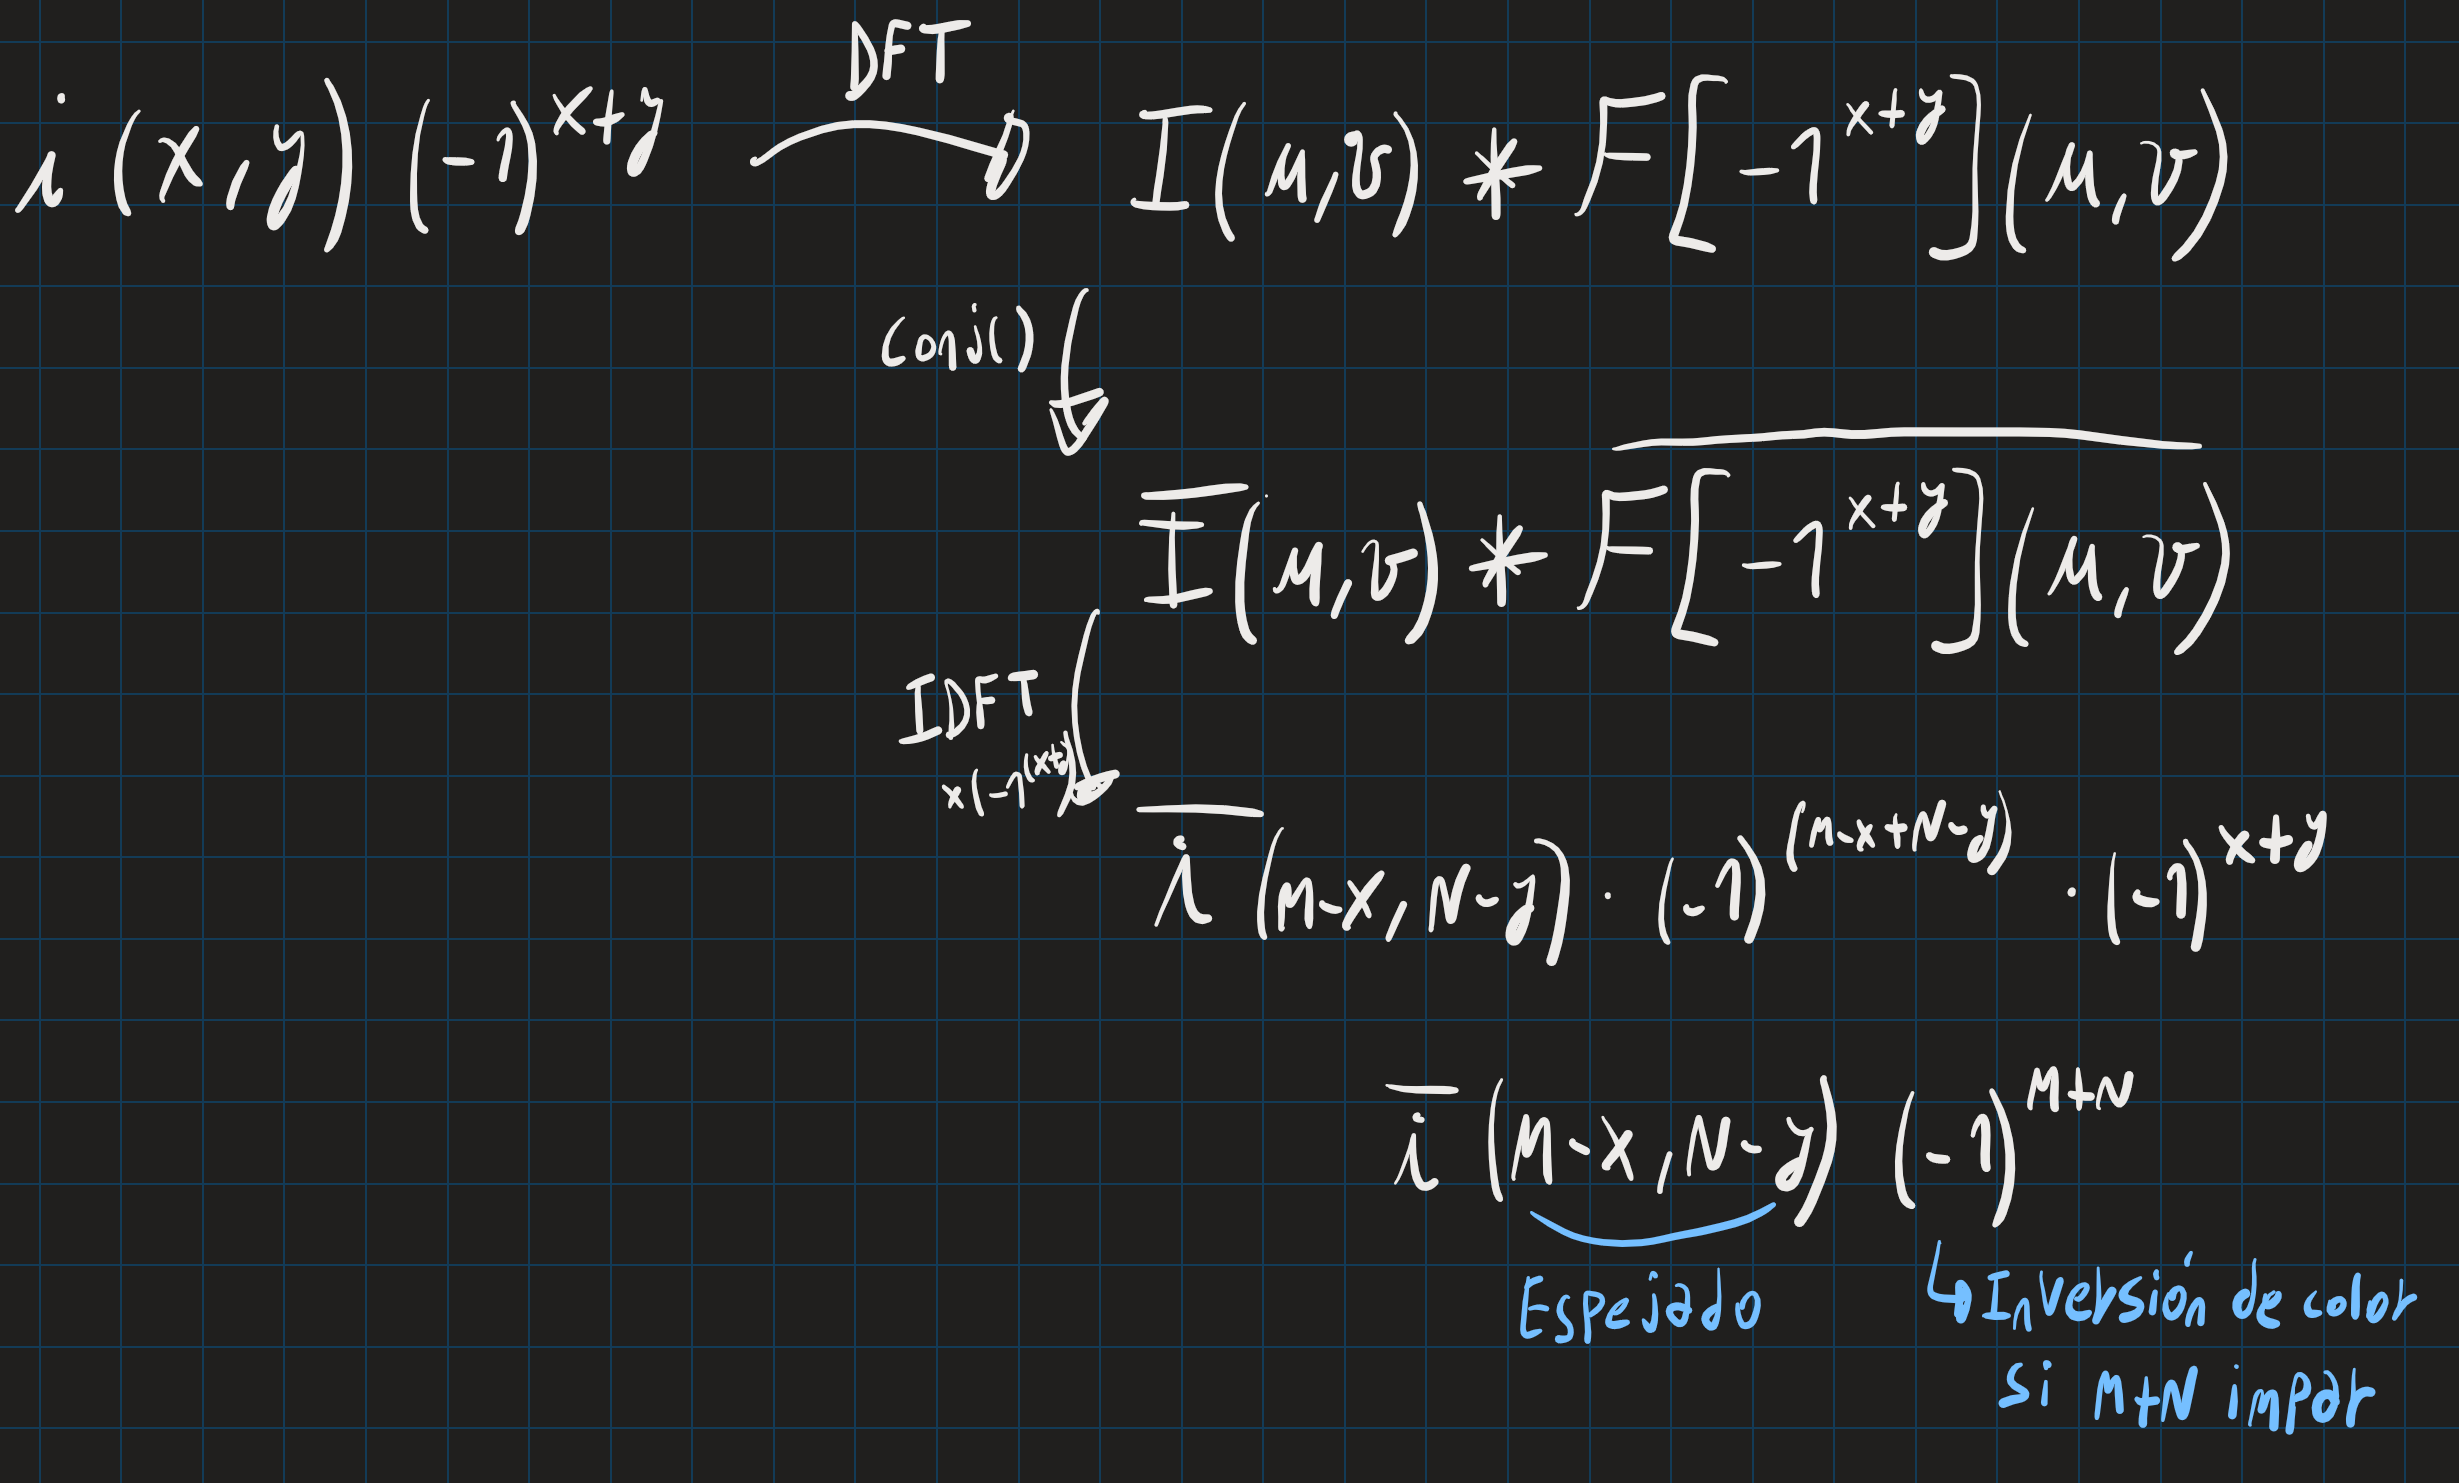 DFT
i(x,y)(-1)^{x+y} → I(μ,v) * F[-1^{x+y}](μ,v)
conj()
\overline{I}(μ,v) * \overline{F[-1^{x+y}](μ,v)}
IDFT
x(-1^{(x+y)})
\overline{i}(M-x, N-y) · (-1)^{(M-x+N-y)} · (-1)^{x+y}
\overline{i}(M-x, N-y) (-1)^{M+N}
Espejado
↳ Inversión de color
si M+N impar